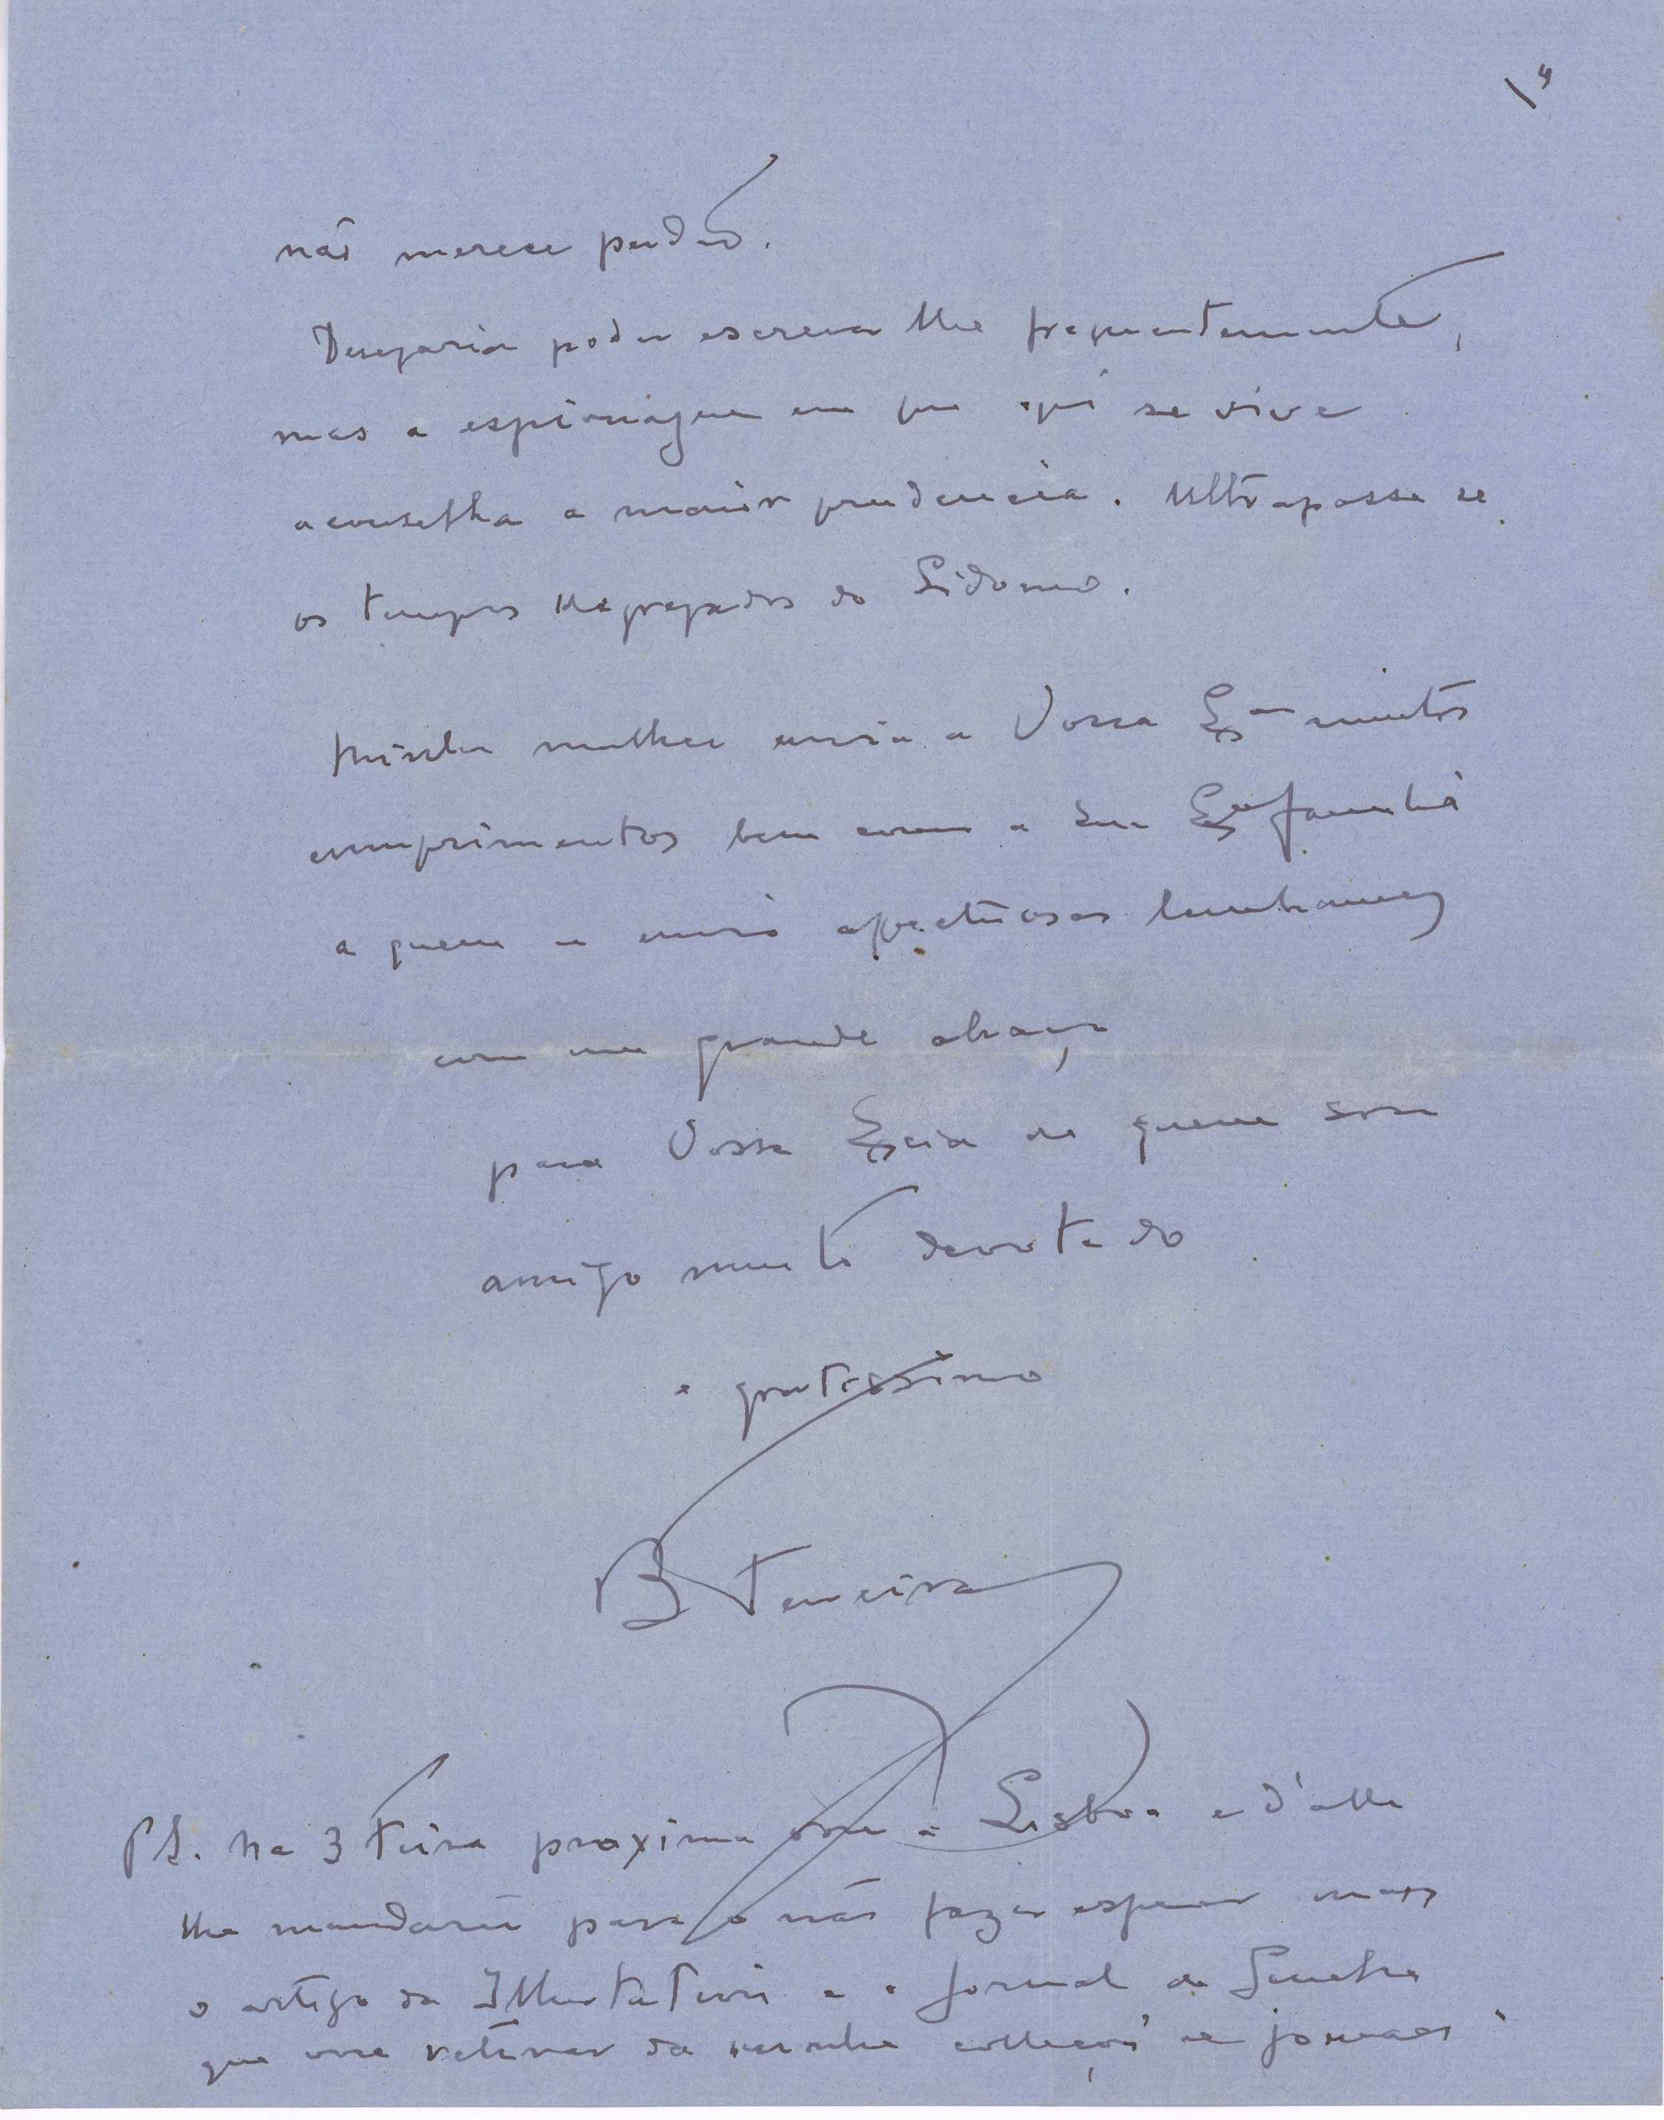 não merece perdão.
Desejaria poder escrever lhe frequentemente,
mas a espionagem em que aqui se vive
aconselha a maior prudencia. Ultrapassa se
os tempos do Sidonio.
Minha mulher envia a Vossa Exª muitos
cumprimentos bem como a sua Exma familia
a quem eu envio affectuosas lembranças
com um grande abraço
para Vossa Excia de quem sou
amigo muito devotado
e gratissimo
B Teixeira
PS. Na 3 feira proxima vou a Lisboa e d'alli
lhe mandarei para o não fazer esperar mais
o artigo da e o Jornal de
que vou retirar da minha collecção de jornaes